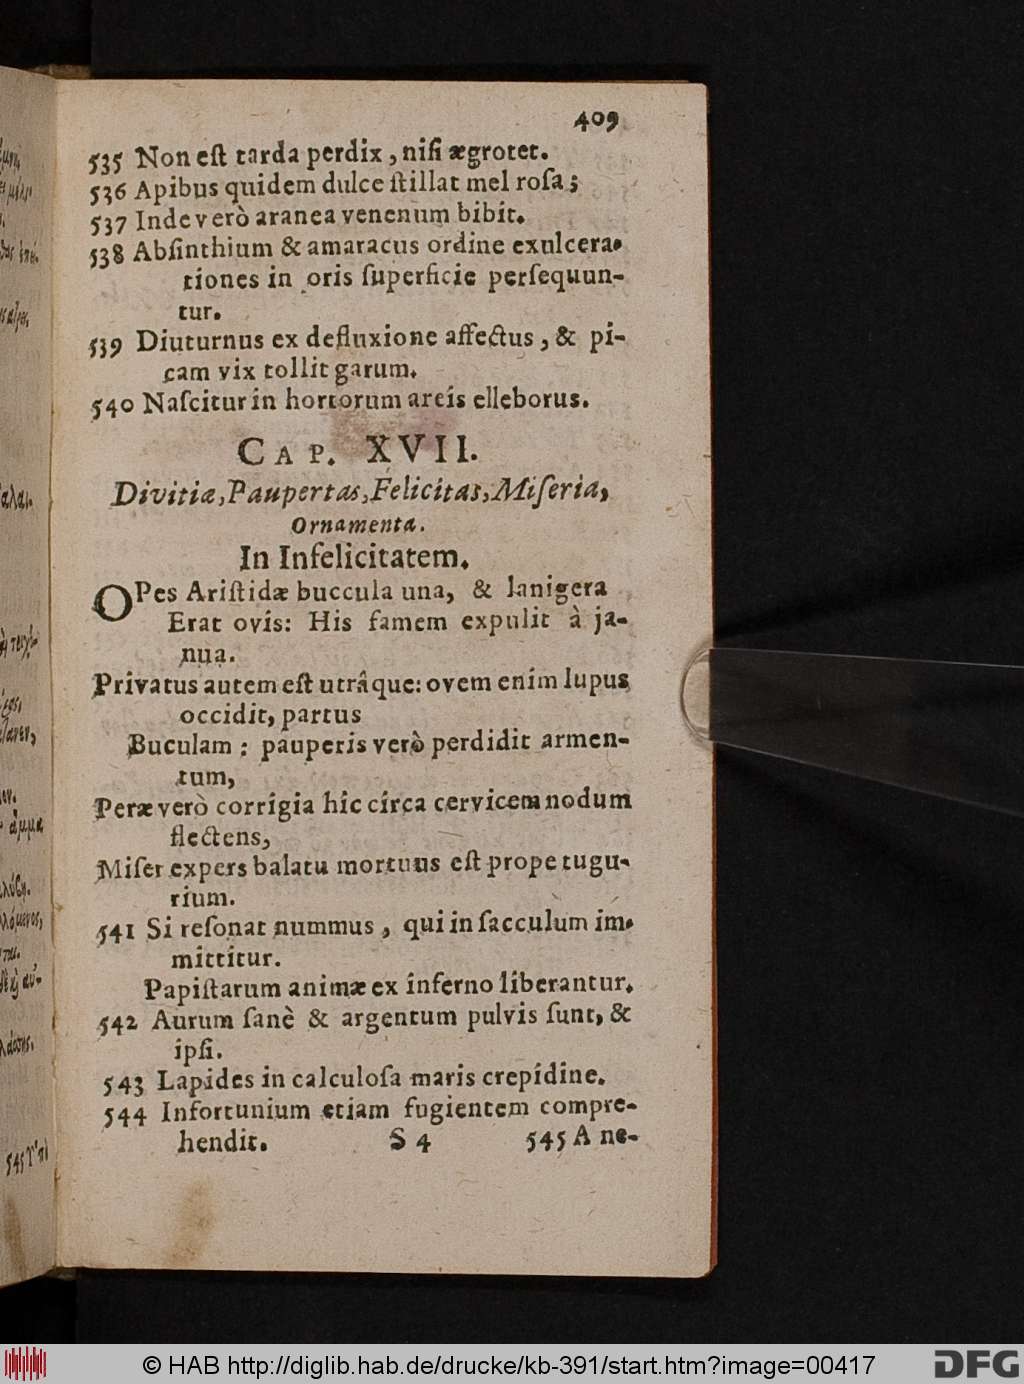 409
535 Non eſt tarda perdix, niſi ægrotet.
536 Apibus quidem dulce ſtillat mel roſa;
537 Inde verò aranea venenum bibit.
538 Abſinthium & amaracus ordine exulcera-
tiones in oris ſuperficie perſequun-
tur.
539 Diuturnus ex defluxione affectus, & pi-
cam vix tollit garum.
540 Naſcitur in hortorum areis elleborus.
CAP. XVII.
Divitiæ, Paupertas, Felicitas, Miſeria,
Ornamenta.
In Infelicitatem.
OPes Ariſtidæ buccula una, & lanigera
Erat ovis: His famem expulit à ja-
nua.
Privatus autem eſt utrâque: ovem enim lupus
occidit, partus
Buculam: pauperis verò perdidit armen-
tum,
Peræ verò corrigia hic circa cervicem nodum
flectens,
Miſer expers balatu mortuus eſt prope tugu-
rium.
541 Si reſonat nummus, qui in ſacculum im-
mittitur.
Papiſtarum animæ ex inferno liberantur.
542 Aurum ſanè & argentum pulvis ſunt, &
ipſi.
543 Lapides in calculoſa maris crepidine.
544 Infortunium etiam fugientem compre-
hendit. S 4 545 A ne-
© HAB http://diglib.hab.de/drucke/kb-391/start.htm?image=00417
DFG